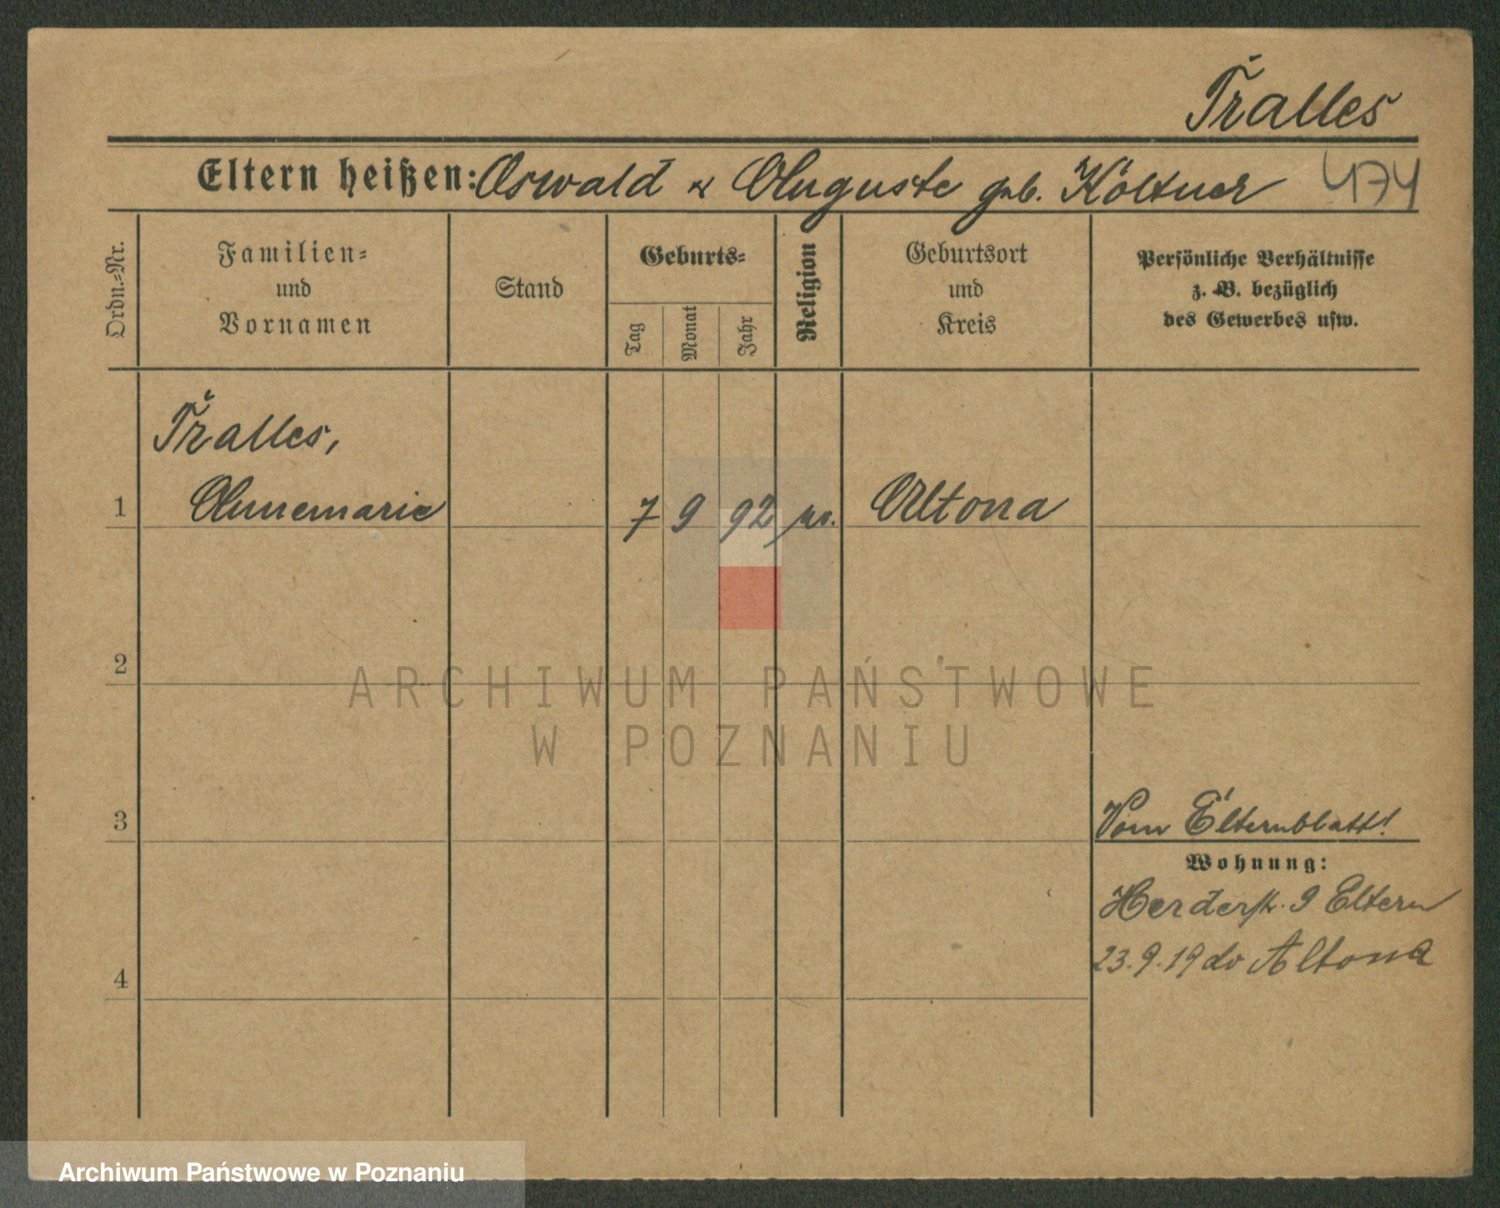 Tralles
Eltern heißen: Oswald & Auguste geb. Költner
474
Ordn.=Nr.
Familien=
und
Vornamen
Stand
Geburts=
Tag
Monat
Jahr
Religion
Geburtsort
und
Kreis
Persönliche Verhältnisse
z. B. bezüglich
des Gewerbes usw.
Tralles,
1 Annemarie 7 9 92 Altona
2
ARCHIWUM PAŃSTWOWE
W POZNANIU
3 Vom Elternblatt!
Wohnung:
Herderstr. 9 Eltern
23.9.19 do Altona
4
Archiwum Państwowe w Poznaniu